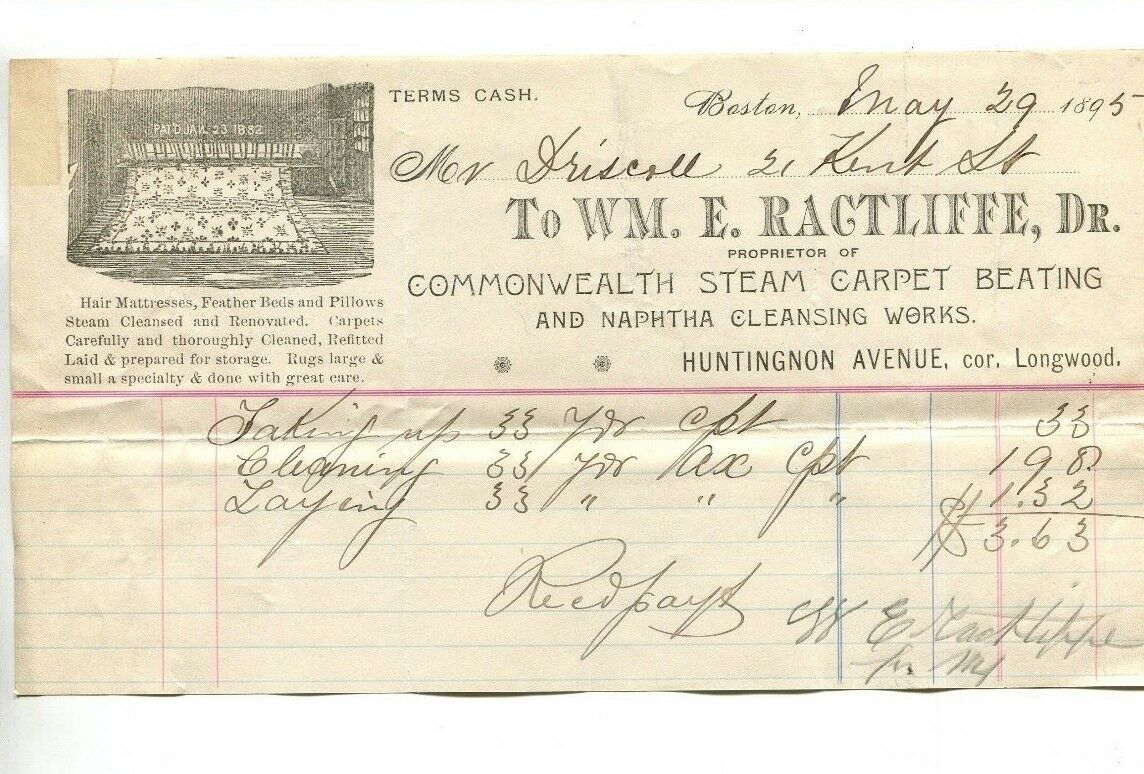 PAT'D JAN. 23 1882
Hair Mattresses, Feather Beds and Pillows
Steam Cleansed and Renovated. Carpets
Carefully and thoroughly Cleaned, Refitted
Laid & prepared for storage. Rugs large &
small a specialty & done with great care.
TERMS CASH.
Boston, May 29 1895
Mr Driscoll 21 Kent St
To WM. E. RACTLIFFE, DR.
PROPRIETOR OF
COMMONWEALTH STEAM CARPET BEATING
AND NAPHTHA CLEANSING WORKS.
HUNTINGNON AVENUE, cor. Longwood.
Taking up 33 yds cpt 33
Cleaning 33 yds ax cpt 198
Laying 33 " " " 1.32
$3.63
Recd payt
W E Ractliffe